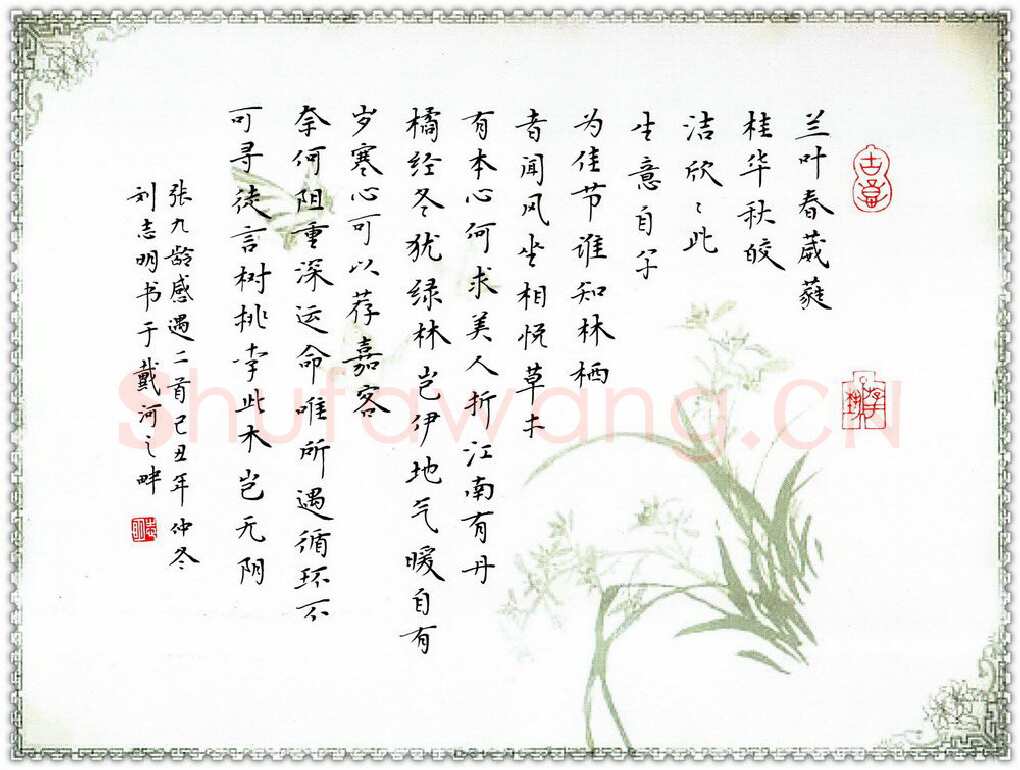 兰叶春葳蕤
桂华秋皎
洁欣〻此
生意自尔
为佳节谁知林栖
者闻风坐相悦草木
有本心何求美人折江南有丹
橘经冬犹绿林岂伊地气暖自有
岁寒心可以荐嘉客
奈何阻重深运命唯所遇循环不
可寻徒言树桃李此木岂无阴
张九龄感遇二首己丑年仲冬
刘志明书于戴河之畔
志明
Shufawang.CN